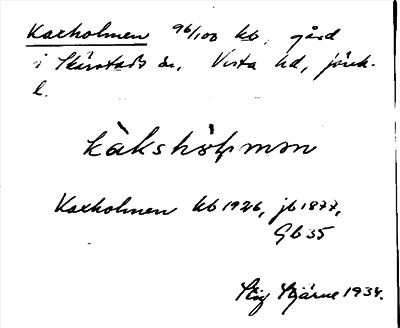 Kaxholmen 96/100 kb, gård
i Skärstads sn, Vista hd, jönk.
l.
kàkshòɫmən
Kaxholmen kb 1926, jb 1877,
Gb 35
Stig Stjärne 1934.